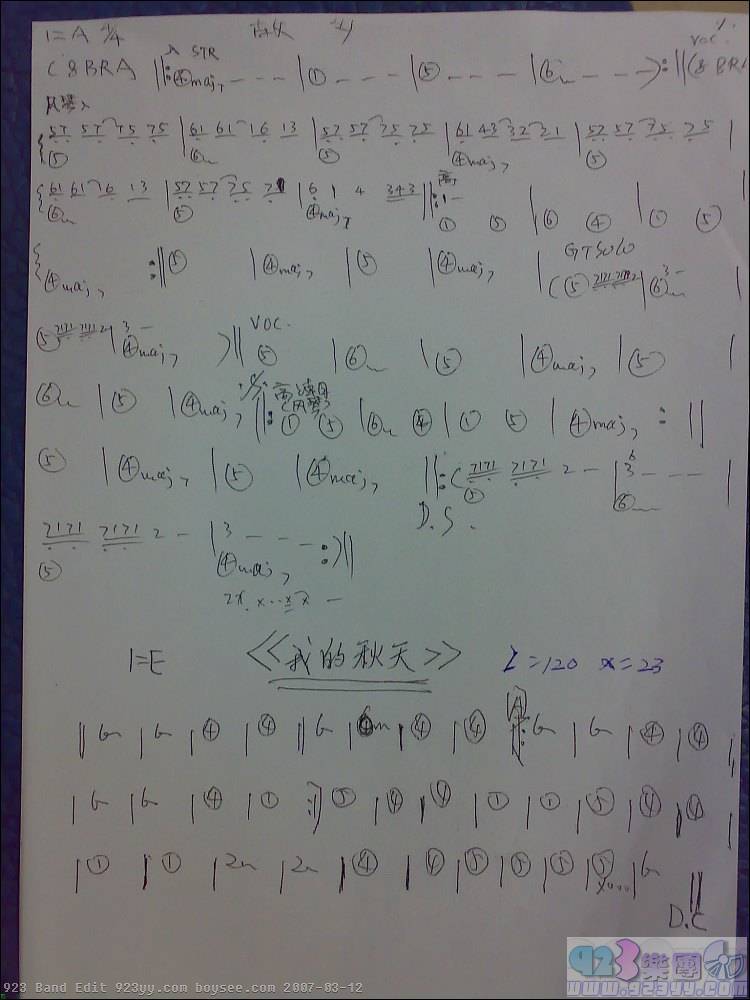 1=A 4/4
入 STR VOC.
(&BRA) ||: ④maj7 - - - | ① - - - | ⑤ - - - | ⑥m - - - ) :|| (& BRA
风琴入
57 57 75 75 | 61 61 16 13 | 57 57 75 75 | 61 43 32 21 | 57 57 75 75 |
⑤ ⑥m ⑤ ④maj7 ⑤
61 61 16 13 | 57 57 75 7 | 6 1 4 343 ||: 1 -
⑥m ⑤ ④maj7 ① ⑤ | ⑥ ④ | ① ⑤
④maj7 :|| ⑤ | ④maj7 | ⑤ | ④maj7 | GTSOLO
(⑤ 7171 7171 2 | ⑥m 3 -
⑤ 7171 7171 2 | ④maj7 3 - ) || VOC. ⑤ | ⑥m | ⑤ | ④maj7 | ⑤
⑥m | ⑤ | ④maj7 ||: ① ⑤ | ⑥m ④ | ① ⑤ | ④maj7 :||
⑤ | ④maj7 | ⑤ | ④maj7 ||: ( 7171 7171 2 - | 3 - - - |
⑤ ⑥m
D.S.
7171 7171 2 - | 3 - - - :) ||
⑤ ④maj7
1=E <<我的秋天>> =120 x=23
|| 6m | 6m | ④ | ④ || 6m | 6m | ④ | ④ [A] ||: 6m | 6m | ④ | ④
| 6m | 6m | ④ | ① :|| ⑤ | ④ | ④ | ① | ① | ⑤ | ④ | ④ |
| ① | ① | 2m | 2m | ④ | ④ | ⑤ | ⑤ | ⑤ | ⑤ | 6m ||
D.C
923樂團
www.923yy.com
923 Band Edit 923yy.com boysee.com 2007-03-12